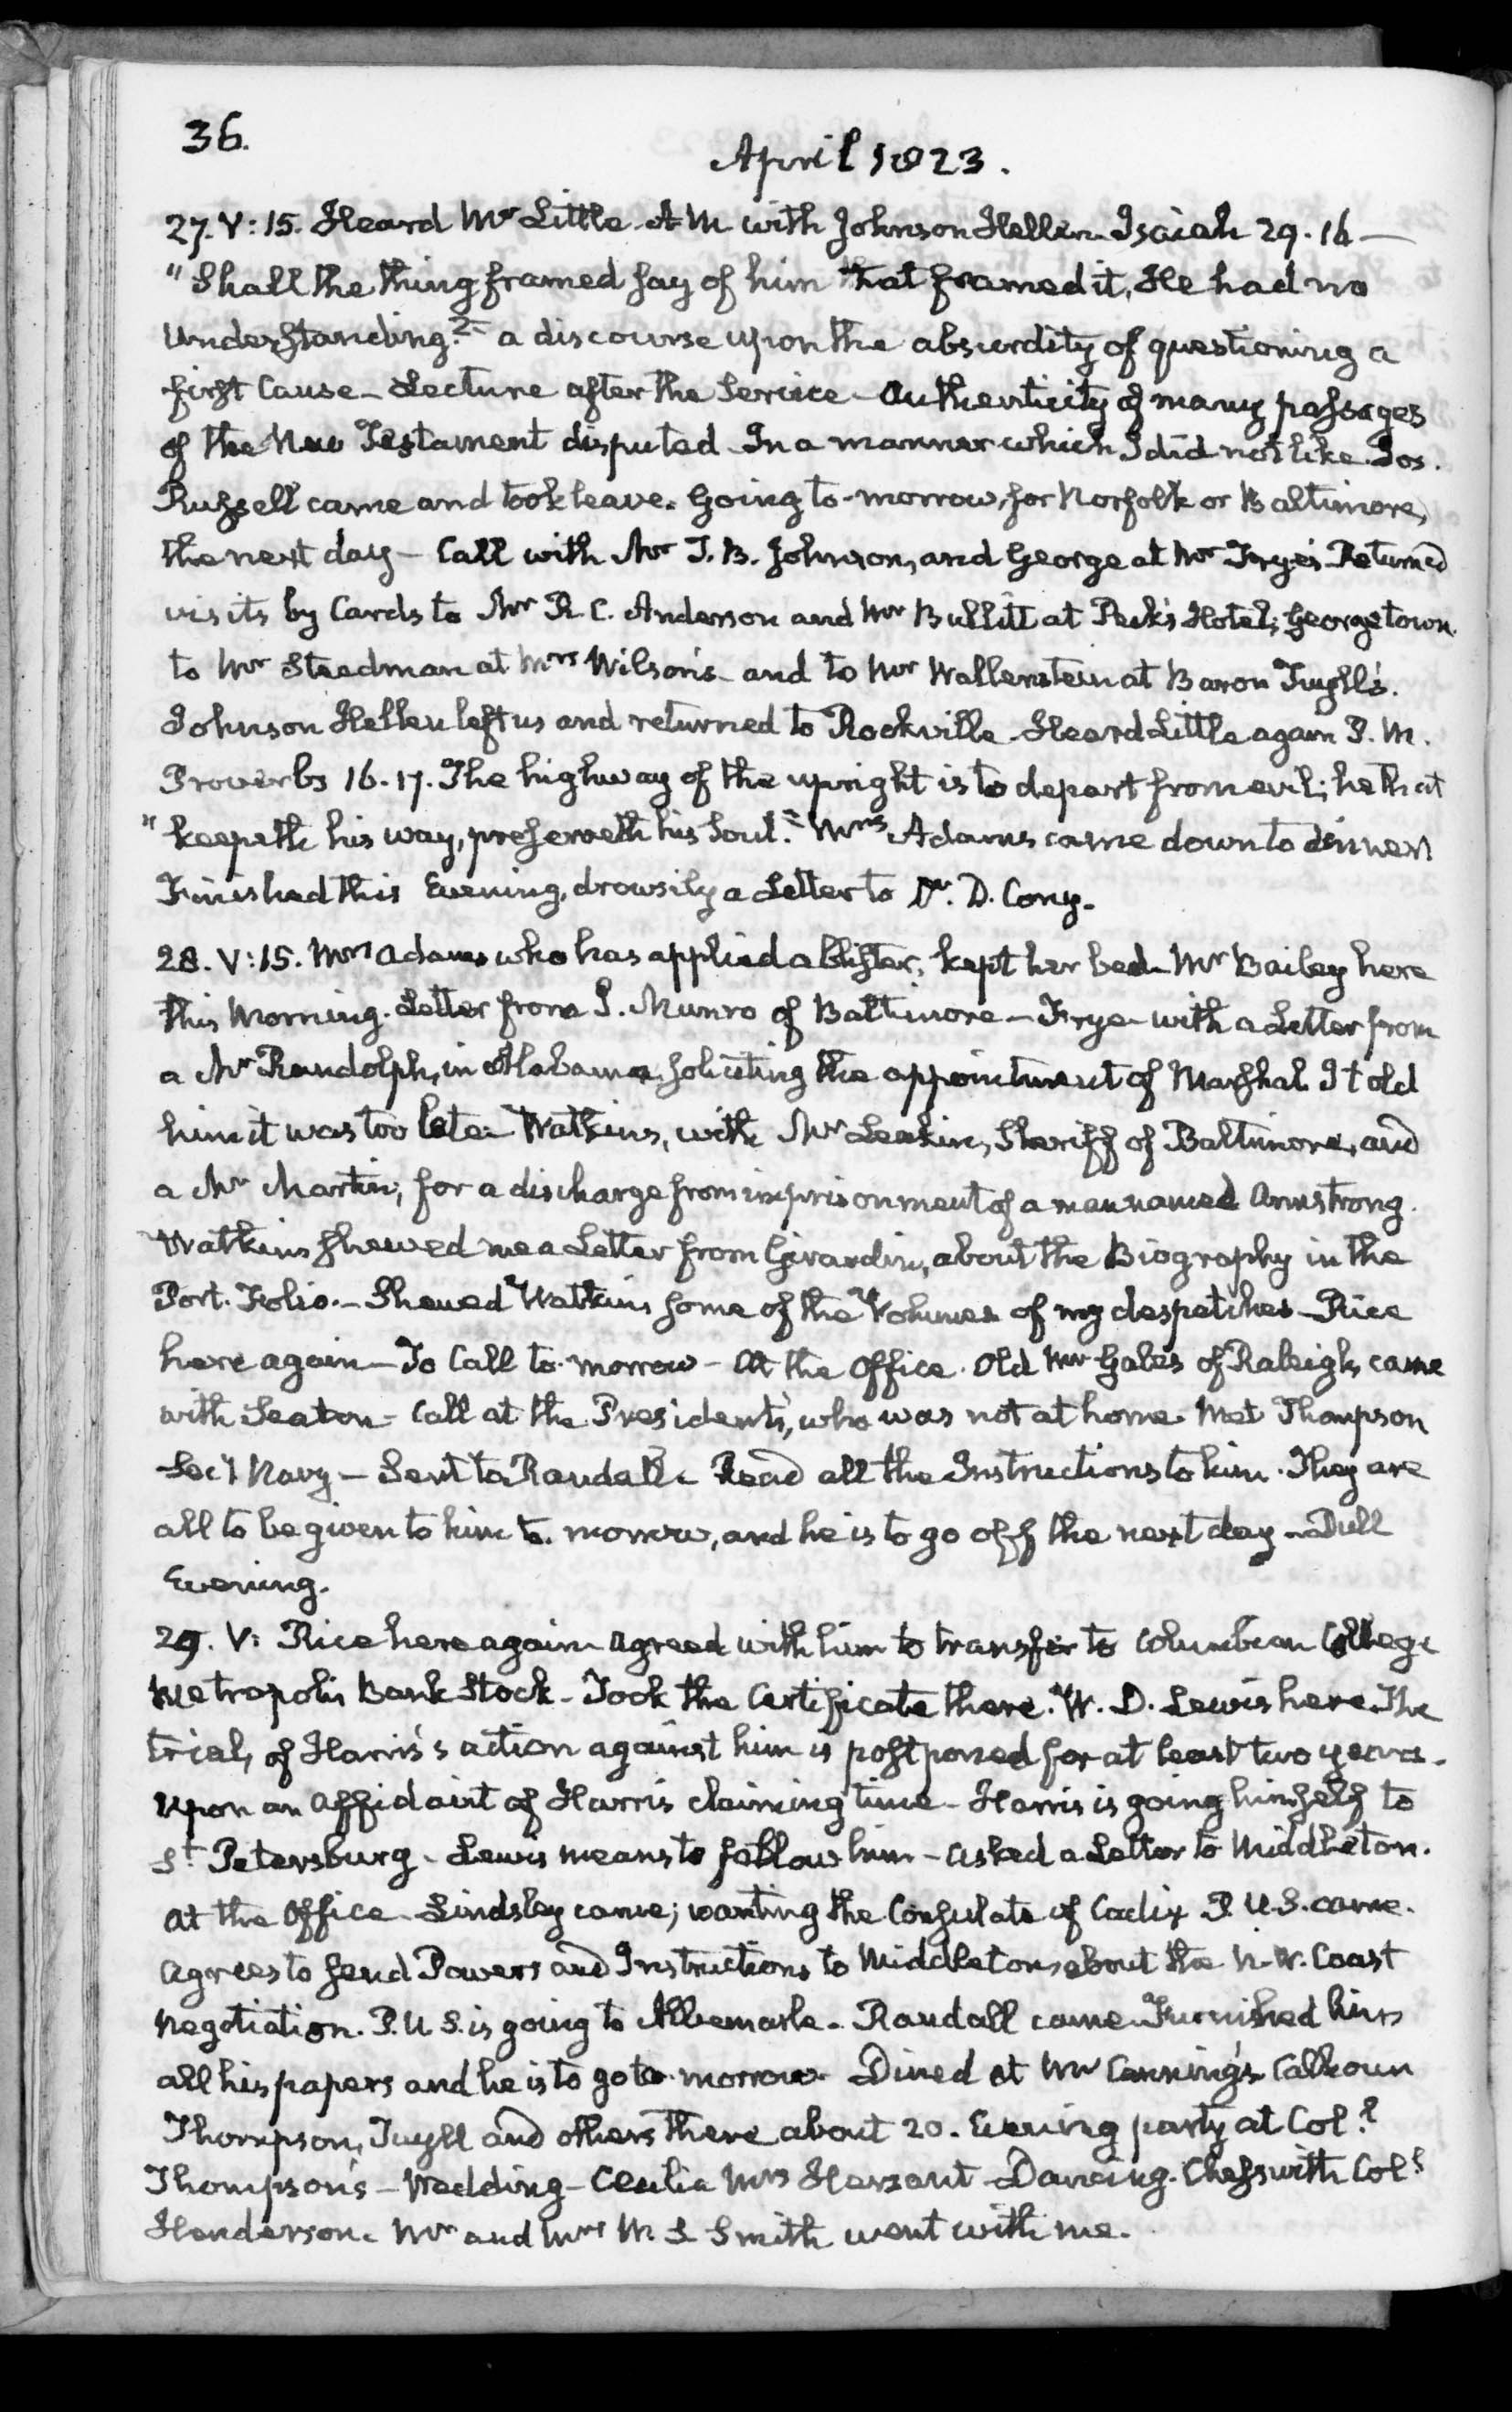 36.
April 1823.
27. V:15. Heard Mr Little A.M. with Johnson Hellen. Isaiah 29.16—
"Shall the thing framed say of him that framed it, He had no
Understanding?" a discourse upon the absurdity of questioning a
first Cause—Lecture after the Service—Authenticity of many passages
of the New Testament disputed—In a manner which I did not like. Jos.
Russell came and took leave. Going to-morrow, for Norfolk or Baltimore,
the next day—Call with Mr T. B. Johnson, and George at Mr Frye's. Returned
visits by Cards to Mr R. C. Anderson and Mr Bullitt at Peck's Hotel, Georgetown.
to Mr Steedman at Mrs Wilson's—and to Mr Wallenstein at Baron Tuyll's.
Johnson Hellen left us and returned to Rockville—Heard Little again P.M.
Proverbs 16.17. The highway of the upright is to depart from evil; he that
"keepeth his way, preserveth his Soul." Mrs Adams came down to dinner
Finished this Evening, drowsily a Letter to Dr. D. Cony.
28. V:15. Mrs Adams who has applied a blister, kept her bed—Mr Bailey here
this Morning. Letter from I. Munro of Baltimore—Frye—with a Letter from
a Mr Randolph, in Alabama, soliciting the appointment of Marshal. I told
him it was too late—Watkins, with Mr Leakin, Sheriff of Baltimore, and
a Mr Martin, for a discharge from imprisonment of a man named Armstrong.
Watkins shewed me a Letter from Girardin, about the Biography in the
Port-Folio.—Shewed Watkins some of the Volumes of my despatches—Rice
here again—To Call to-morrow—At the Office. Old Mr Gales of Raleigh, came
with Seaton—Call at the President's, who was not at home. Met Thompson
Secy Navy—Sent to Randall—Read all the Instructions to him. They are
all to be given to him to-morrow, and he is to go off the next day—Dull
Evening.
29. V: Rice here again—Agreed with him to transfer to Columbian College
Metropolis Bank Stock—Took the Certificate there. W. D. Lewis here. The
trial, of Harris's action against him is postponed for at least two years.
Upon an Affidavit of Harris claiming time—Harris is going himself to
St Petersburg—Lewis means to follow him—asked a Letter to Middleton.
At the Office—Lindsley came; wanting the Consulate of Cadiz P.U.S. came.
Agrees to send Powers and Instructions to Middleton, about the N.W. Coast
Negotiation. P.U.S. is going to Albemarle. Randall came—Furnished him
all his papers and he is to go to-morrow. Dined at Mr Canning's—Calhoun
Thompson, Tuyll and others there about 20. Evening party at Coll
Thompson's—Wedding—Cecilia Mrs Dancing. Chess with Coll
Henderson. Mr and Mrs W. S. Smith went with me.